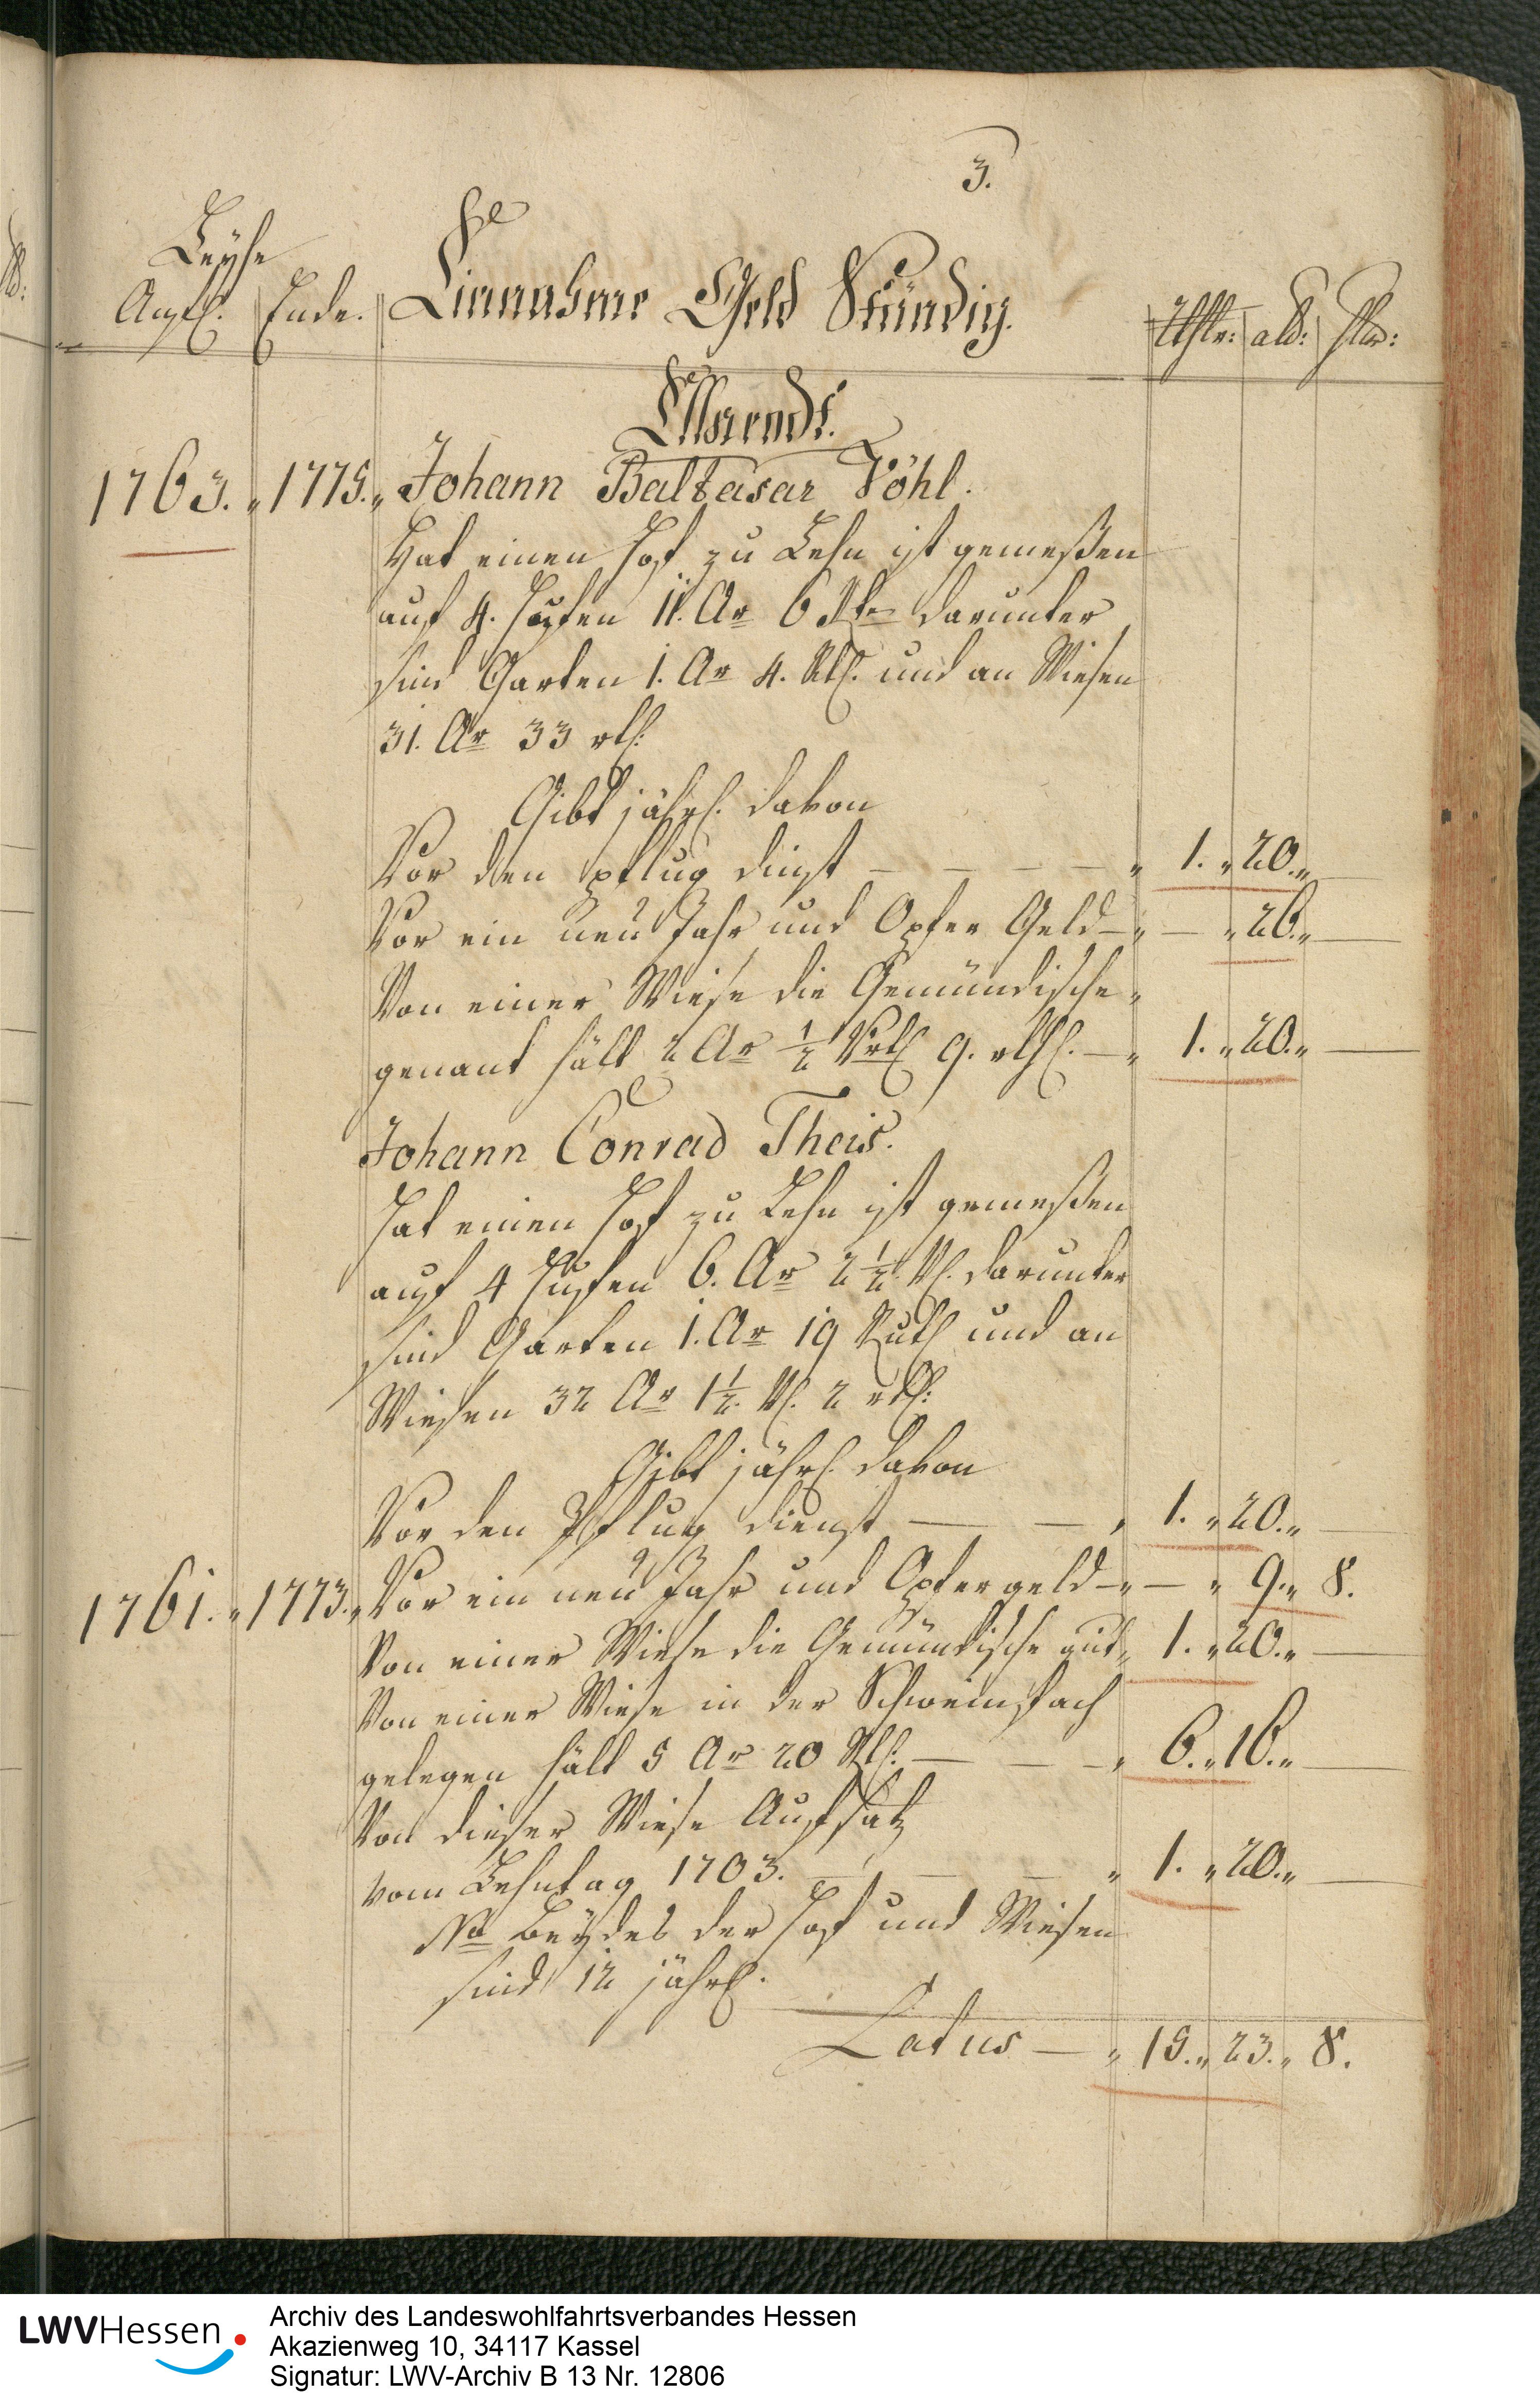 3.
Leyhe
Anfl. Ende. Einnahme Geld Ständig.
Rthlr: alb: hlr:
Ellerode.
1763. 1775. Johann Baltasar Vöhl.
Hat einen Hof zu Lehn ist gemeßen
auf 4. Hufen 11. Ar 6 Rth darunter
sind Garten 1. Ar 4. Rth. und an Wiesen
31. Ar 33 rth:
Gibt jährl. davon
Vor den pflug dinst — — — — 1. 20. —
Vor ein neu Jahr und Opfer Geld — — 26. —
Von einer Wiese die Gemündische
genant hält 2 Ar ½ Vrtl 9. rth. — 1. 20. —
Johann Conrad Theis.
Hat einen Hof zu Lehn ist gemeßen
auf 4 Hufen 6. Ar 2 ½ Vl. darunter
sind Garten 1. Ar 19 Ruth und an
Wiesen 32 Ar 1½ Vl. 2 rth:
Gibt jährl. davon
Vor den Pflug dienst — — 1. 20. —
1761. 1773. Vor ein neu Jahr und Opfergeld — — 9. 8.
Von einer Wiese die Gemündische gnt. 1. 20. —
Von einer Wiese in der Schweinsbach
gelegen hält 5 Ar 20 Rth. — — — 6. 16. —
Von dieser Wiese Aufsatz
vom Lehntag 1703. — — — 1. 20. —
Na Beydes der Hof und Wiesen
sind 12 jährl.
Latus — 15. 23. 8.
LWVHessen
Archiv des Landeswohlfahrtsverbandes Hessen
Akazienweg 10, 34117 Kassel
Signatur: LWV-Archiv B 13 Nr. 12806